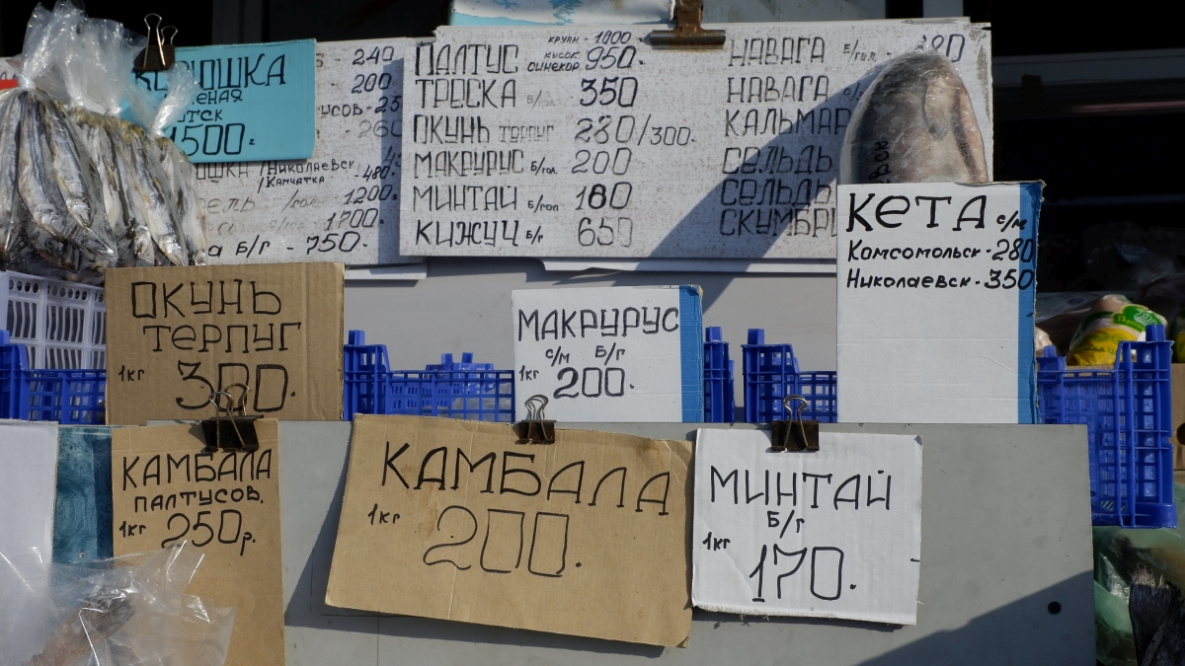 КОРЮШКА
1500 г
240
200
260
Николаевск
/Камчатка - 480.
1200.
1700.
Б/Г - 750.
крупн. - 1000
ПАЛТУС кусог. 950.
синекор.
ТРЕСКА б/гол. 350
ОКУНЬ терпуг 280/300.
МАКРУРУС б/гол. 200
МИНТАЙ б/гол 180
КИЖУЧ б/г 650
НАВАГА б/гол.
НАВАГА
КАЛЬМАР
СЕЛЬДЬ
СЕЛЬДЬ
КЕТА с/м
Комсомольск - 280
Николаевск - 350
ОКУНЬ
ТЕРПУГ
1кг 300.
МАКРУРУС
с/м б/г
1кг 200.
КАМБАЛА
ПАЛТУСОВ.
1кг 250р.
КАМБАЛА
1кг 200.
МИНТАЙ
Б/г
1кг 170.